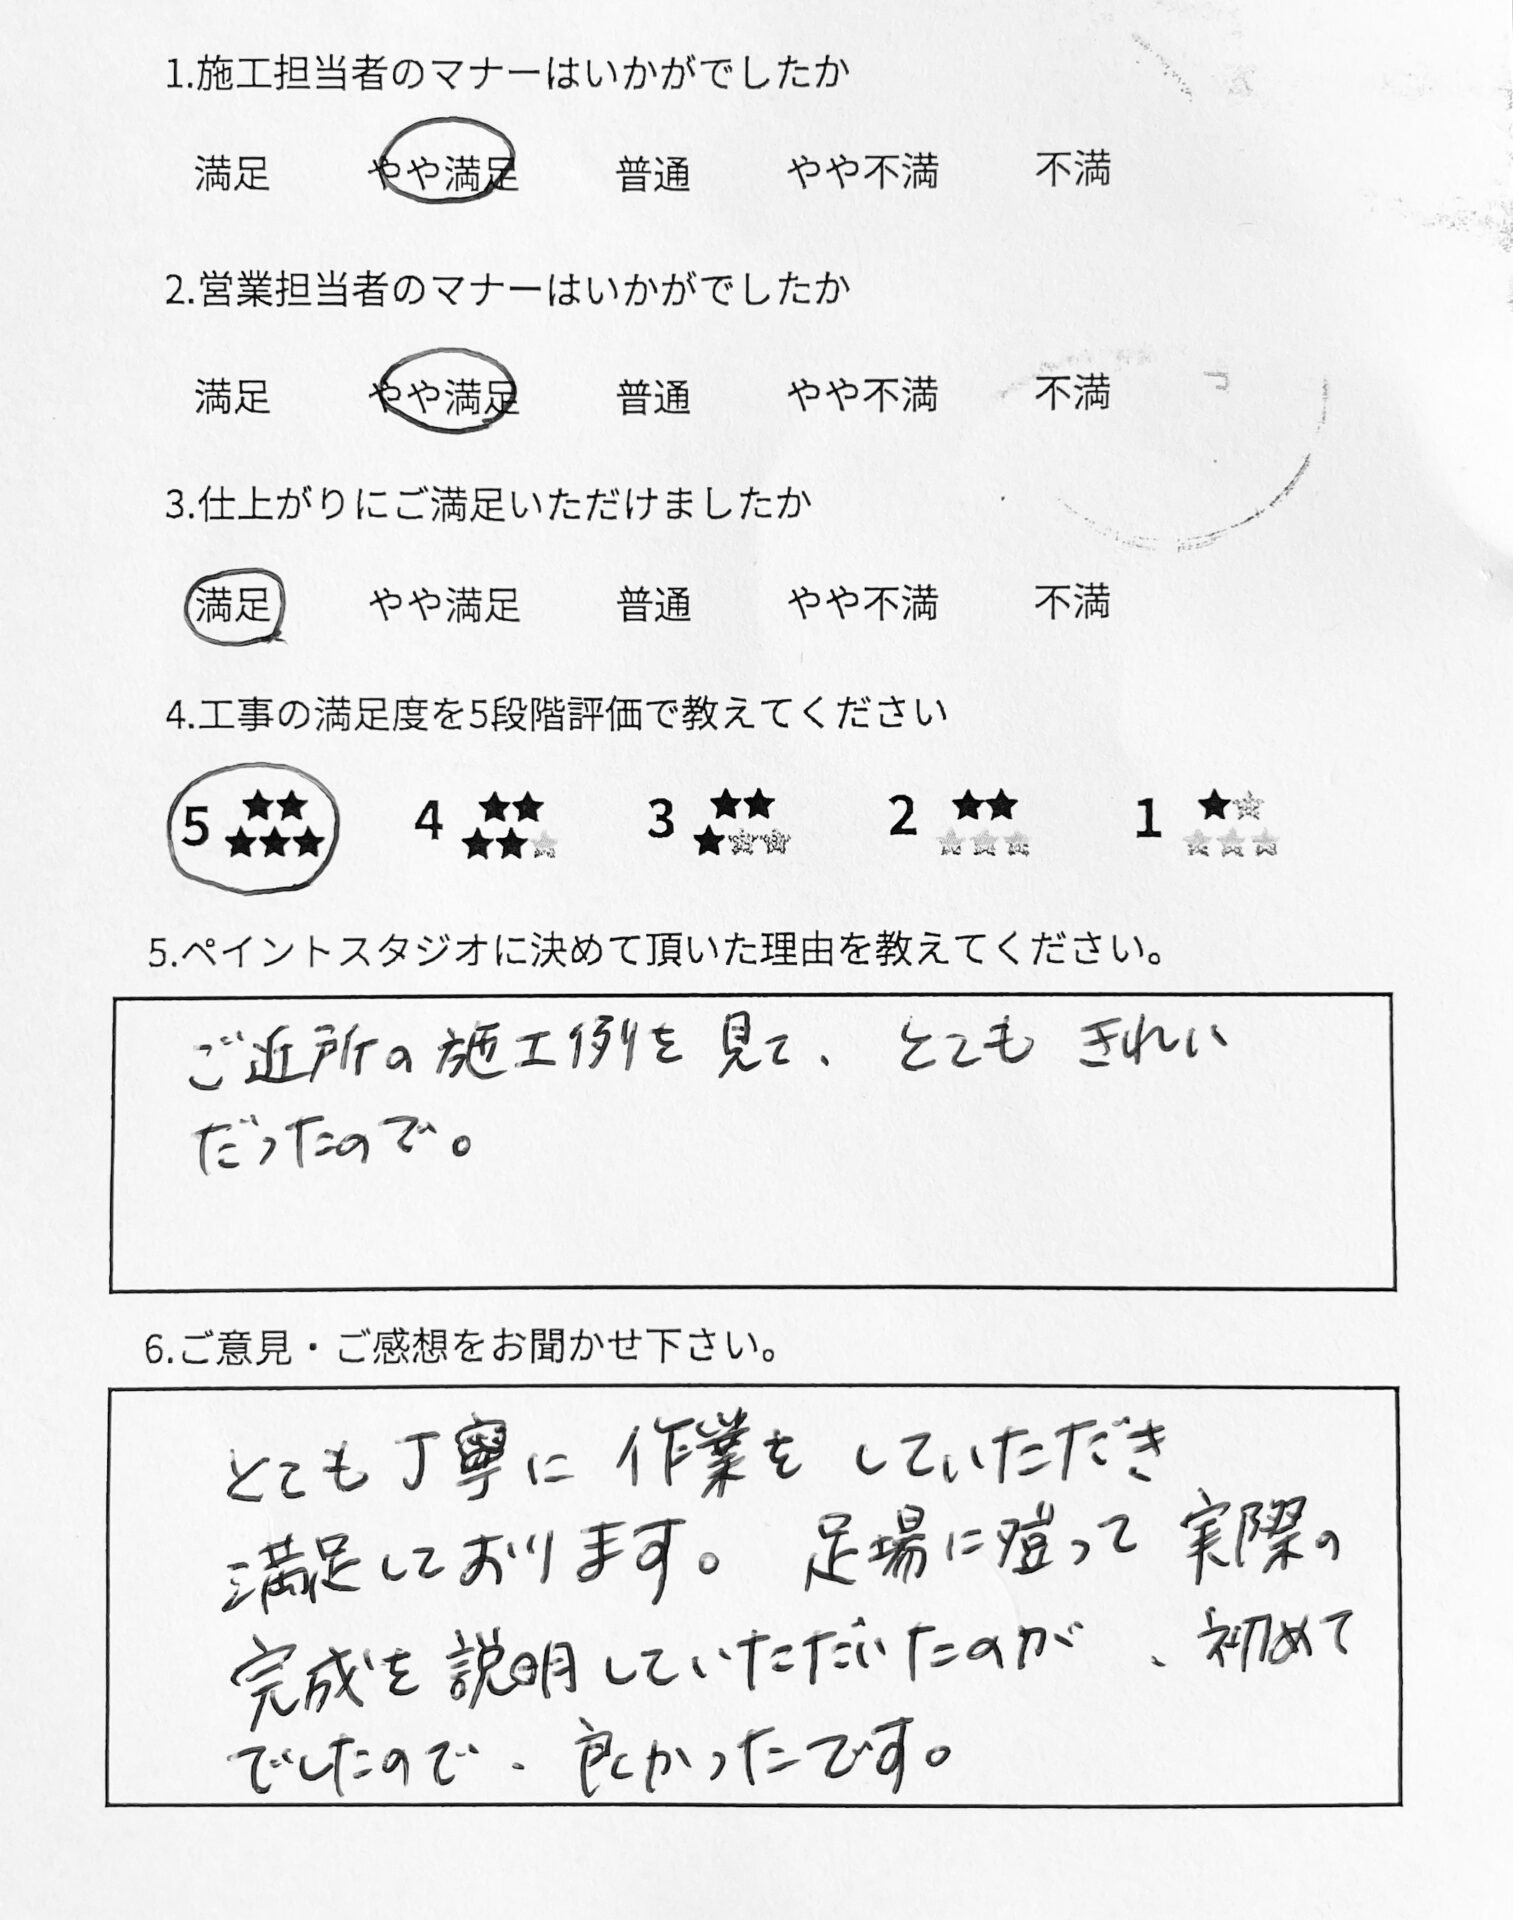 1.施工担当者のマナーはいかがでしたか
満足 やや満足 普通 やや不満 不満
2.営業担当者のマナーはいかがでしたか
満足 やや満足 普通 やや不満 不満
3.仕上がりにご満足いただけましたか
満足 やや満足 普通 やや不満 不満
4.工事の満足度を5段階評価で教えてください
5 ★★★★★ 4 ★★★★☆ 3 ★★★☆☆ 2 ★★☆☆☆ 1 ★☆☆☆☆
5.ペイントスタジオに決めて頂いた理由を教えてください。
ご近所の施工例を見て、とても きれい
だったので。
6.ご意見・ご感想をお聞かせ下さい。
とても丁寧に作業をしていただき
満足しております。足場に登って実際の
完成を説明していただいたのが、初めて
でしたので、良かったです。